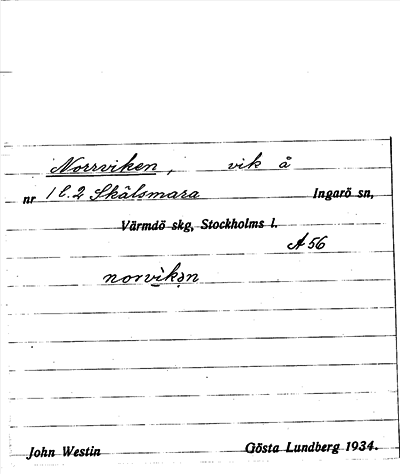 Norrviken, vik å
nr 1 l. 2 Skälsmara Ingarö sn,
Värmdö skg, Stockholms l.
A 56
norvikən
John Westin Gösta Lundberg 1934.